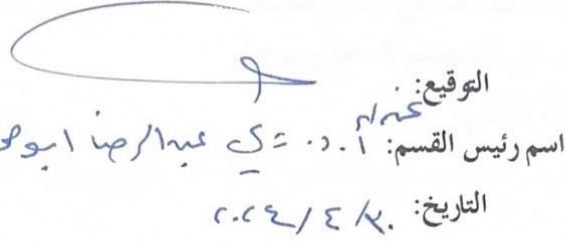 التوقيع:
اسم رئيس القسم: أ.د. عبد الرضا
التاريخ: ٣٠/٤/٢٠٢٤